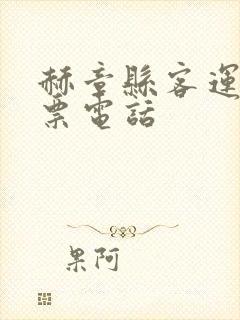 赫章縣客運
票電話
果阿